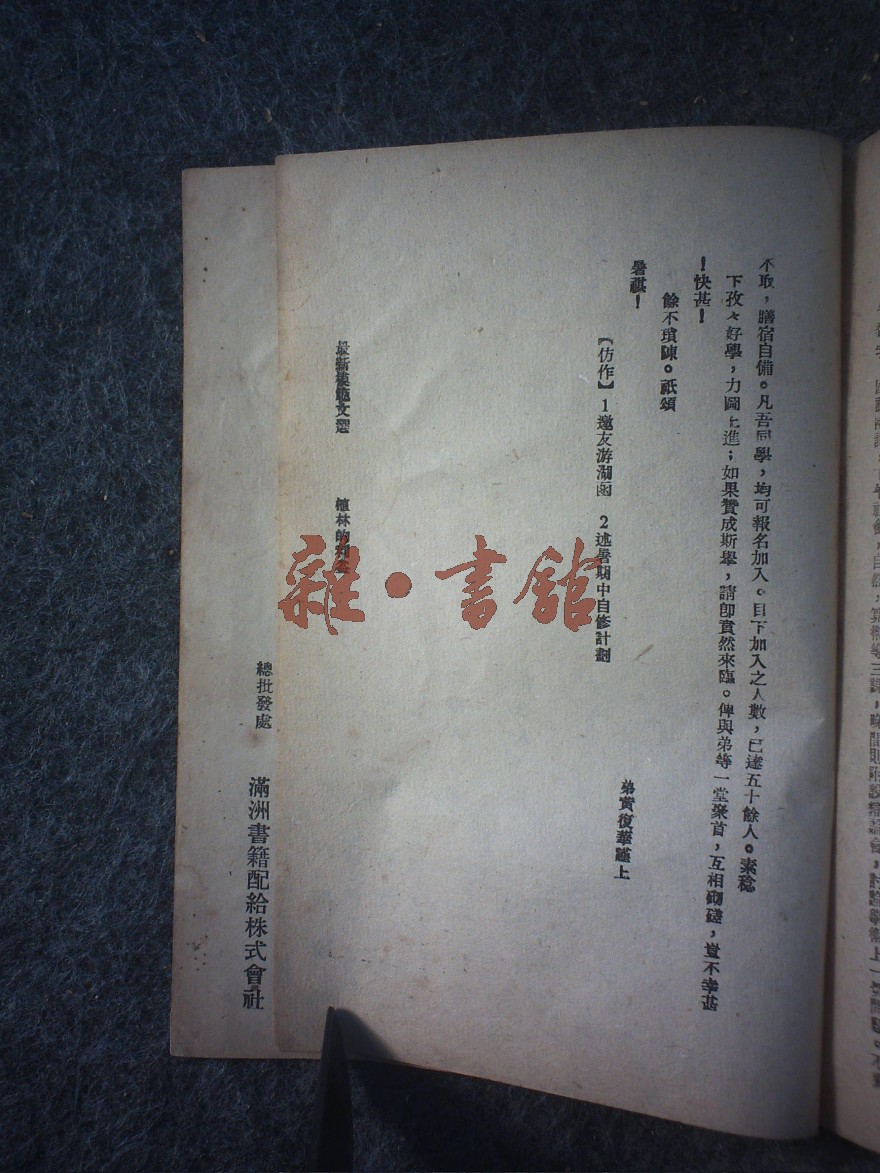 不取，膳宿自備。凡吾同學，均可報名加入。目下加入之人數，已達五十餘人。素稔
下孜々好學，力圖上進；如果贊成斯舉，請卽賁然來臨。俾與弟等一堂聚首，互相砌磋，豈不幸甚
！快甚！
餘不瑣陳。祇頌
暑祺！
弟黃復華謹上
【仿作】 1邀友游湖函 2述暑期中自修計劃
最新模範文選 植林的利益
總批發處 滿洲書籍配給株式會社
雜·書館